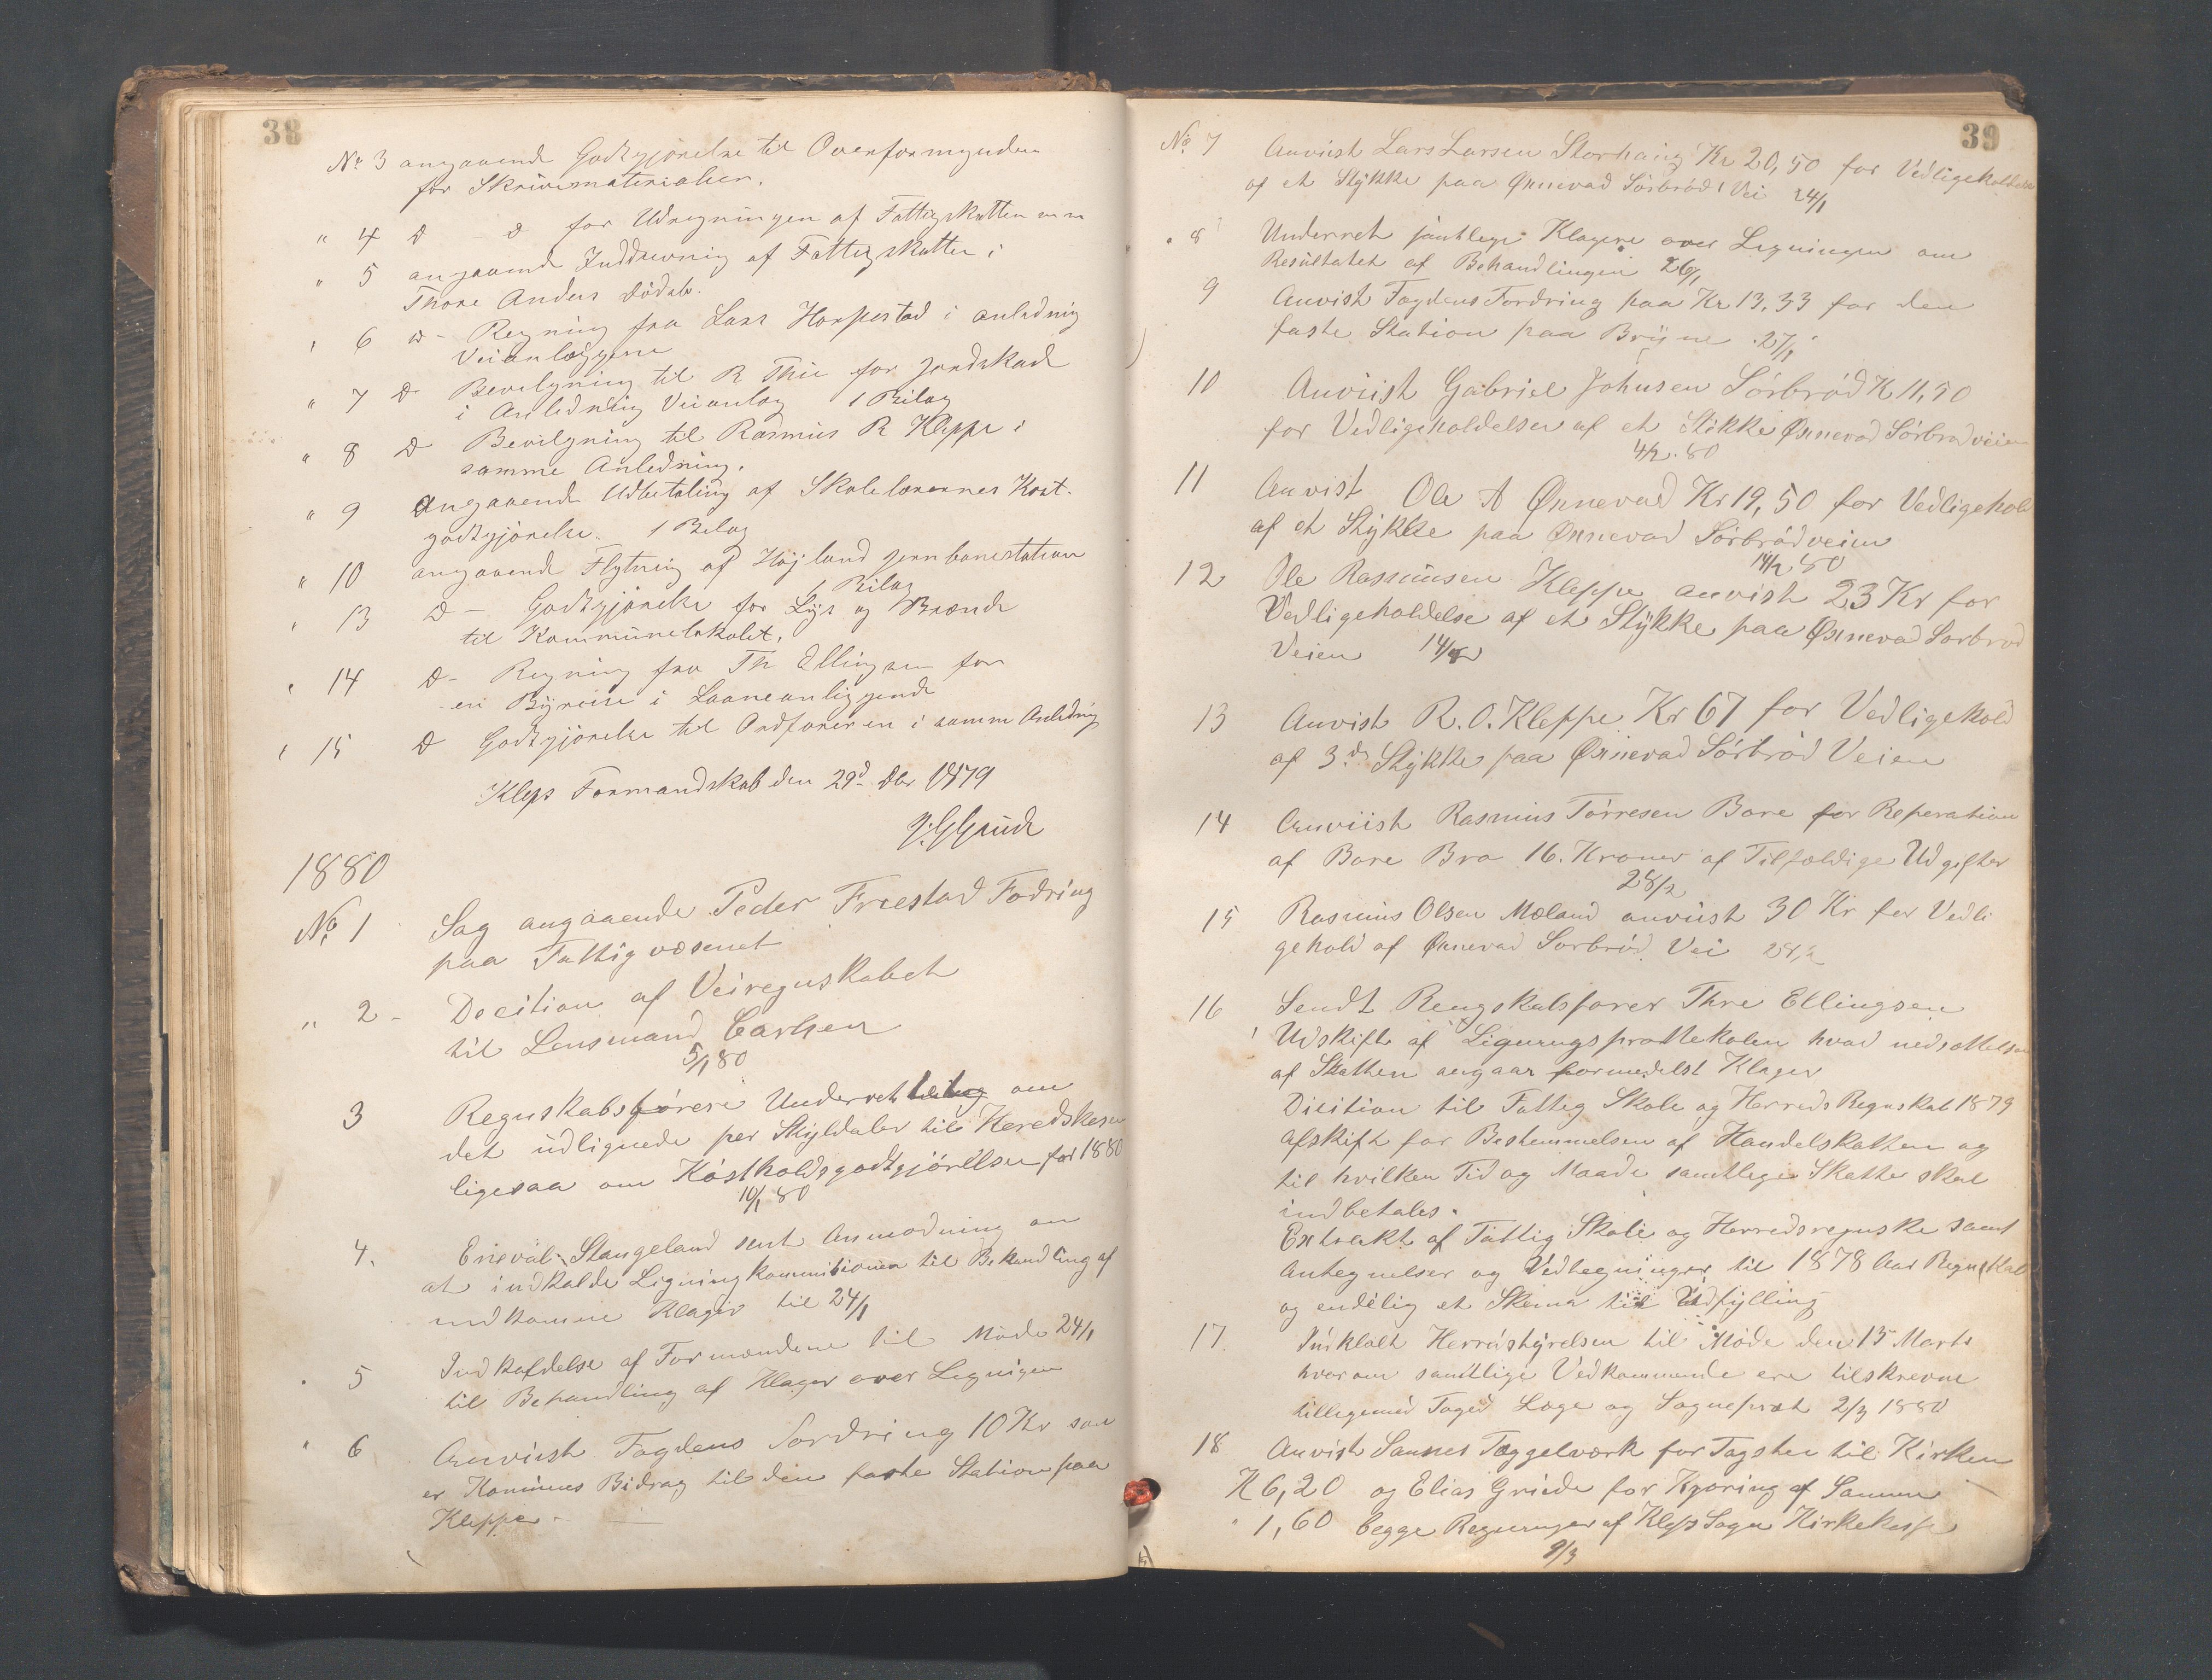 38
No 3 angaaende Godtgjörelse til Overformynder
for Skrivematerialier.
" 4 D D for Udregningen af Fattigskatten m m
" 5 angaaende Inddrivning af Fattigskatten i
Thore Anders Dödsb.
" 6 D - Regning fra Lars Horpestad i anledning
Veianlæggene
" 7 D Bevilgning til R Thu for Jordskade
i Anledning Veianlæg 1 Bilag
" 8 D Bevilgning til Rasmus R Kleppe i
samme Anledning.
" 9 Angaaende Udbetaling af Skolelærernes Kost-
godtgjörelse. 1 Bilag
" 10 angaaende Flytning af Höjland Jernbanestation
1 Bilag
" 13 D - Godtgjörelse for Lÿs og Brænde
til Kommunelokalet.
" 14 D - Regning fra Th Ellingsen for
en Bÿreise i Laaneanliggende
" 15 D Godtgjörelse til Ordföreren i samme Anledning
Kleps Formandskab den 29d Dbr 1879
J. G Grude
1880
No 1 Sag angaaende Peder Friestad Fodring
paa Fattigvæsenet
" 2 - Decition af Veiregnskabet
til Lensmand Carlsen
5/1 80
3 Regnskabsförere Underrettet om
det udlignede per Skÿldaler til Heredskassen
ligesaa om Kostholdsgodtgjörelsen for 1880
10/1 80
4. Eneval Stangeland sent Anmodning om
at indkalde Ligningkommisionen til Behandling af
indkomne Klager til 24/1
5 Indkaldelse af Formændene til Möde 24/1
til Behandling af Klager over Ligningen
" 6 Anviist Fogdens Fordring 10 Kr som
er Komunes Bidrag til den faste Station paa
Kleppe -
39
No 7 Anviist Lars Larsen Storhaug Kr 20,50 for Vedligeholdelse
af et Stÿkke paa Önnevad Sörbröd Vei 24/1
" 8 Underret samtlege Klagere over Ligningen om
Resultatet af Behandlingen 26/1
9 Anvist Fogdens Fordring paa Kr 13,33 for den
faste Station paa Brÿne 27/1
10 Anviist Gabriel Johnsen Sörbröd K 11,50
for Vedligeholdelsen af et Stikke Önnevad Sörbrodveien
4/2. 80
11 Anvist Ole A Önnevad Kr 19,50 for Vedligehold
af et Stÿkke paa Önnevad Sörbrödveien
14/2 80
12 Ole Rasmusen Kleppe anvist 23 Kr for
Vedligeholdelse af et Stÿkke paa Önnevad Sorbrod
Veien 14/2
13 Anvist R. O. Kleppe Kr 67 for Vedligehold
af 3de Stÿkke paa Önnevad Sörbröd Veien
14 Anviist Rasmus Törresen Bore for Reperation
af Bore Bro 16. Kroner af Tilfældige Udgifter
28/2
15 Rasmus Olsen Mæland anviist 30 Kr for Vedli
gehold af Önnevad Sorbröd Vei 28/2
16 Sendt Rengskabsförer Thre Ellingsen
Udskift af Ligningsprottekolen hvad nedsattelsen
af Skatten angaar formedelst Klager
Dicition til Fattig Skole og Herreds Regnskab 1879
Afskift for Bestemmelsen af Handelskatten og
til hvilken Tid og Maade samtlege Skatte skal
indbetales.
Extrakt af Fattig Skole og Herredsregnske samt
Antegnelser og Vedtegninger til 1878 Aars Regnskab
og endelig et Skema til Udfylling
17. Indkaldt Herredstÿrelsen til Möde den 15 Marts
hvorom samtlige Vedkommende ere tilskrevne
tilligemed Foged Læge og Sognepræst 2/3 1880
18 Anvist Sannes Tæggelværk for Tagsten til Kirken
K 6,20 og Elias Grude for Kjöring af Samme
" 1,60 begge Regninger af Klep Sogns Kirkekasse
9/3